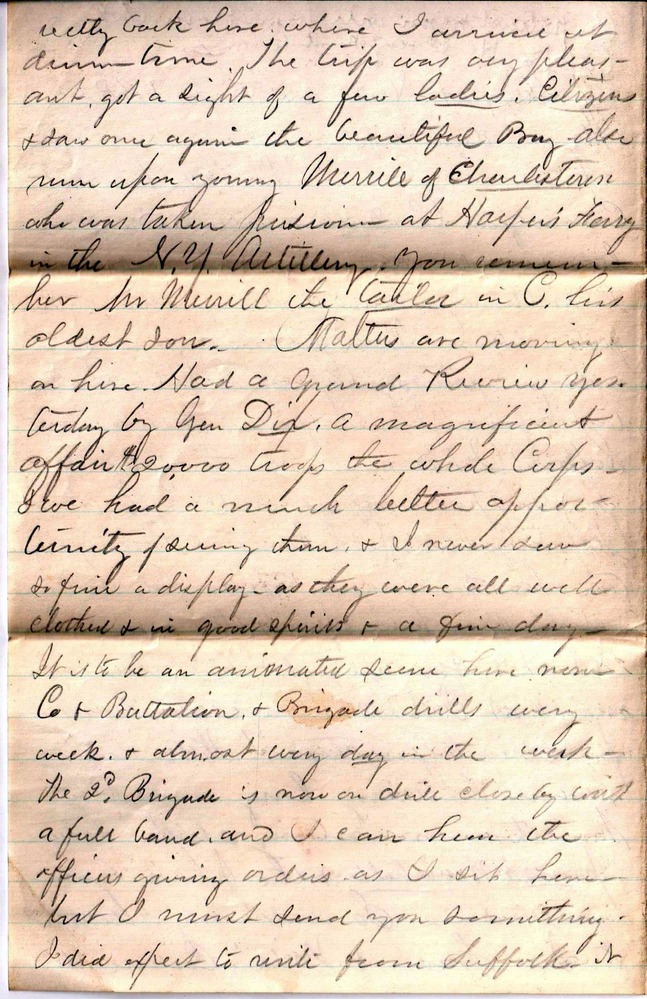 rectly back here, where I arrived at
dinner time. The trip was very pleas-
ant, got a sight of a few ladies, Citizens
& saw once again the beautiful Bay also
run upon young Merrill of Charlestown
who was taken prisoner at Harper's Ferry
in the N.Y. Artillery, you remem-
ber Mr Merrill the tailor in C. his
oldest son. Matters are moving
on here. Had a Grand Review yes-
terday by Gen Dix, a magnificent
affair 20,000 troops the whole Corps
I've had a much better oppor-
tunity of seeing them, & I never saw
so fine a display as they were all well
clothed & in good spirits & a fine day
It is to be an animated scene here now
Co & Battalion, & Brigade drills every
week, & almost every day in the week
The 2d Brigade is now on drill close by with
a full band, and I can hear the
officers giving orders as I sit here
but I must send you something.
I did expect to write from Suffolk